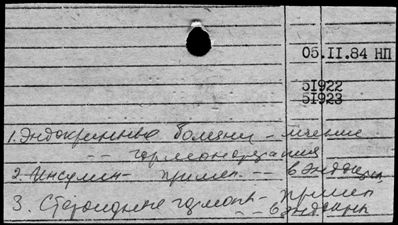 05.II.84 НП
51922
51923
1. Эндокринные болезни - лечение
-- гормонотерапия
2. Инсулин - примен. -- в эндокрин.
3. Стероидные гормоны - примен
-- в эндокрин